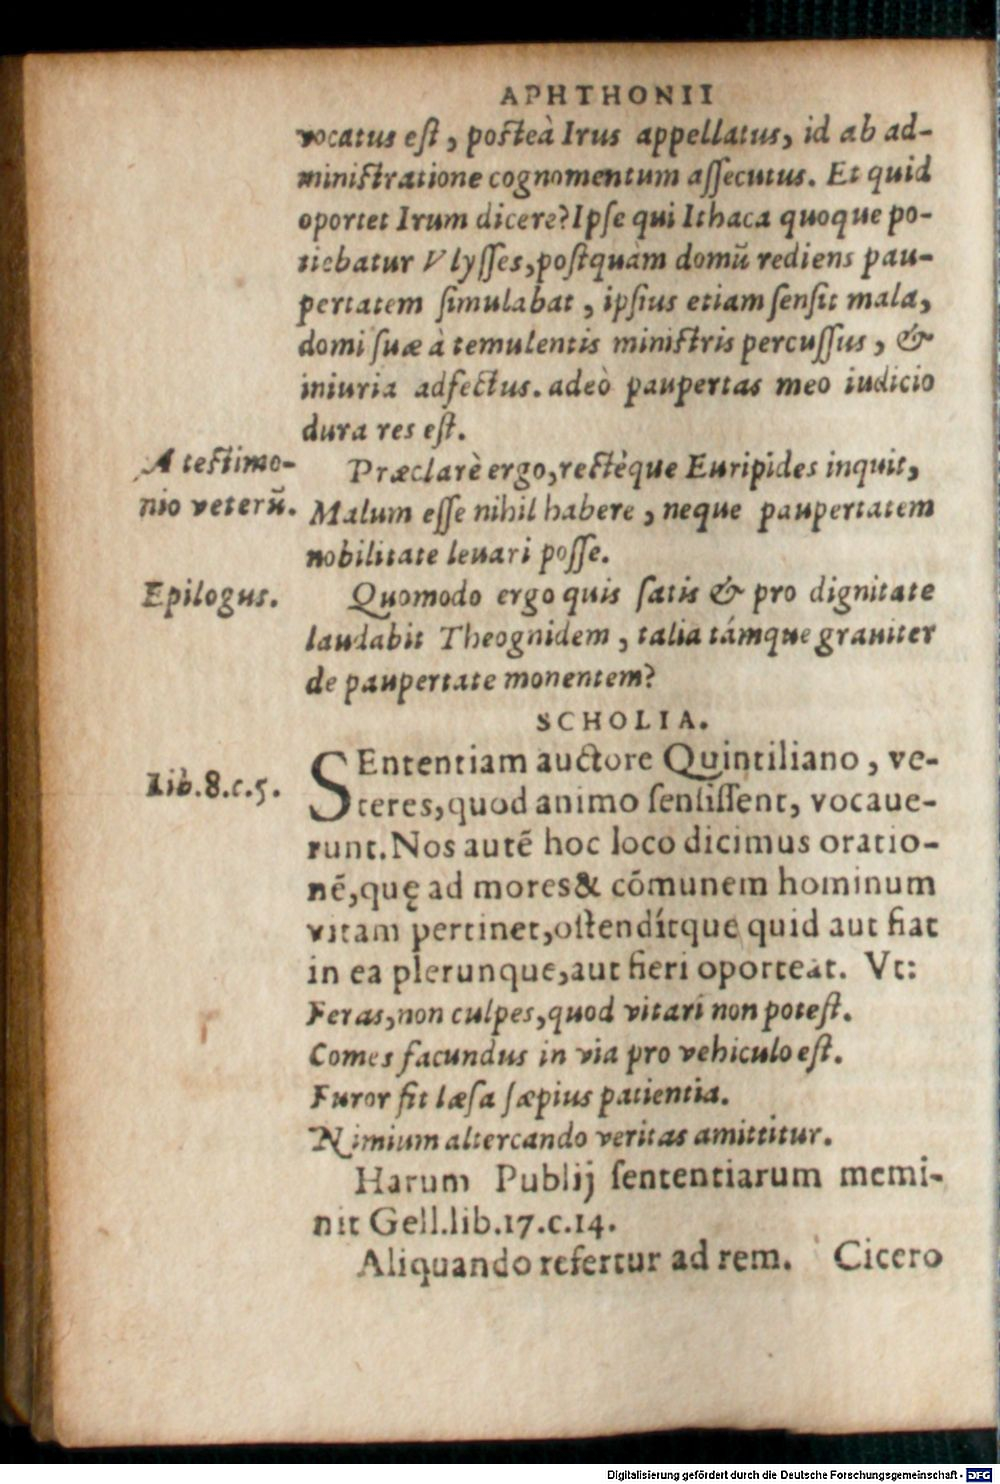 APHTHONII
vocatus eſt, poſteà Irus appellatus, id ab ad-
miniſtratione cognomentum aſſecutus. Et quid
oportet Irum dicere? Ipſe qui Ithaca quoque po-
tiebatur Vlyſſes, poſtquàm domũ rediens pau-
pertatem ſimulabat, ipſius etiam ſenſit mala,
domi ſuæ à temulentis miniſtris percuſſus, &
iniuria adfectus. adeò paupertas meo iudicio
dura res eſt.
A teſtimo-
nio veterũ.
Præclarè ergo, rectéque Euripides inquit,
Malum eſſe nihil habere, neque paupertatem
nobilitate leuari poſſe.
Epilogus.
Quomodo ergo quis ſatis & pro dignitate
laudabit Theognidem, talia támque grauiter
de paupertate monentem?
SCHOLIA.
Lib.8.c.5.
SEntentiam auctore Quintiliano, ve-
teres, quod animo ſenſiſſent, vocaue-
runt. Nos autẽ hoc loco dicimus oratio-
nẽ, quę ad mores & cõmunem hominum
vitam pertinet, oſtendítque quid aut fiat
in ea plerunque, aut fieri oporteat. Vt:
Feras, non culpes, quod vitari non poteſt.
Comes facundus in via pro vehiculo eſt.
Furor fit læſa ſæpius patientia.
Nimium altercando veritas amittitur.
Harum Publij ſententiarum memi-
nit Gell.lib.17.c.14.
Aliquando refertur ad rem. Cicero
Digitalisierung gefördert durch die Deutsche Forschungsgemeinschaft - DFG